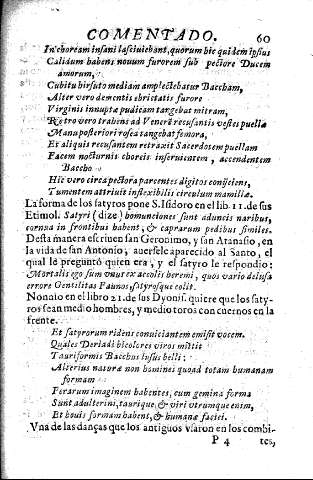 COMENTADO. 60
In choream insani lasciuiebant, quorum hic quidem ipsius
Calidum habens nouum furorem sub pectore Ducem
amorum,
Cubitu hirsuto mediam amplectebatur Baccham,
Alter vero dementis ebrietatis furore
Virginis innuptæ pudicam tangebat mitram,
Retro vero trahens ad Venerē recusantis vestes puellæ
Manu posteriori rosea tangebat femora,
Et aliquis recusantem retraxit Sacerdotem puellam
Facem nocturnis choreis inseruientem, accendentem
Baccho
Hic vero circa pectora parcentes digitos conijciens,
Tumentem attriuit inflexibili circulum mamillæ.
La forma de los satyros pone S. Isidoro en el lib. 11. de sus
Etimol. Satyri (dize) homunciones sunt aduncis naribus,
cornua in frontibus habent, & caprarum pedibus similes.
Desta manera escriuen san Geronimo, y san Atanasio, en
la vida de san Antonio, auersele aparecido al Santo, el
qual le preguntó quien era, y el satyro le respondio:
Mortalis ego sum vnus ex accolis heremi, quos vario delusa
errore Gentilitas Faunos satyrosque colit.
Nonnio en el libro 21. de sus Dyonis. quiere que los saty-
ros sean medio hombres, y medio toros con cuernos en la
frente.
Et satyrorum rident conuiciantem emisit vocem.
Quales Deriadi bicolores viros mittit
Tauriformis Bacchus lusus belli:
Alterius naturæ non homines quoad totam humanam
formam
Ferarum imaginem habentes, cum gemina forma
Sunt adulterini, taurique, & viri vtrumque enim,
Et bouis formam habent, & humanæ faciei.
Vna de las danças que los antiguos vsaron en los combi-
P 4 tes,